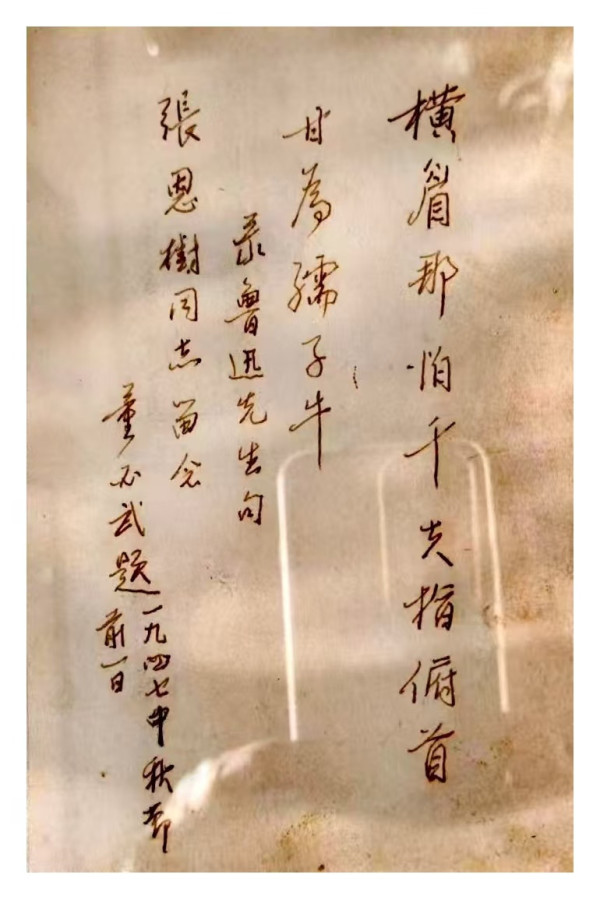 橫眉那怕千夫指俯首
甘為孺子牛
录魯迅先生句
張恩樹同志留念
董必武题
一九四七中秋節
前一日